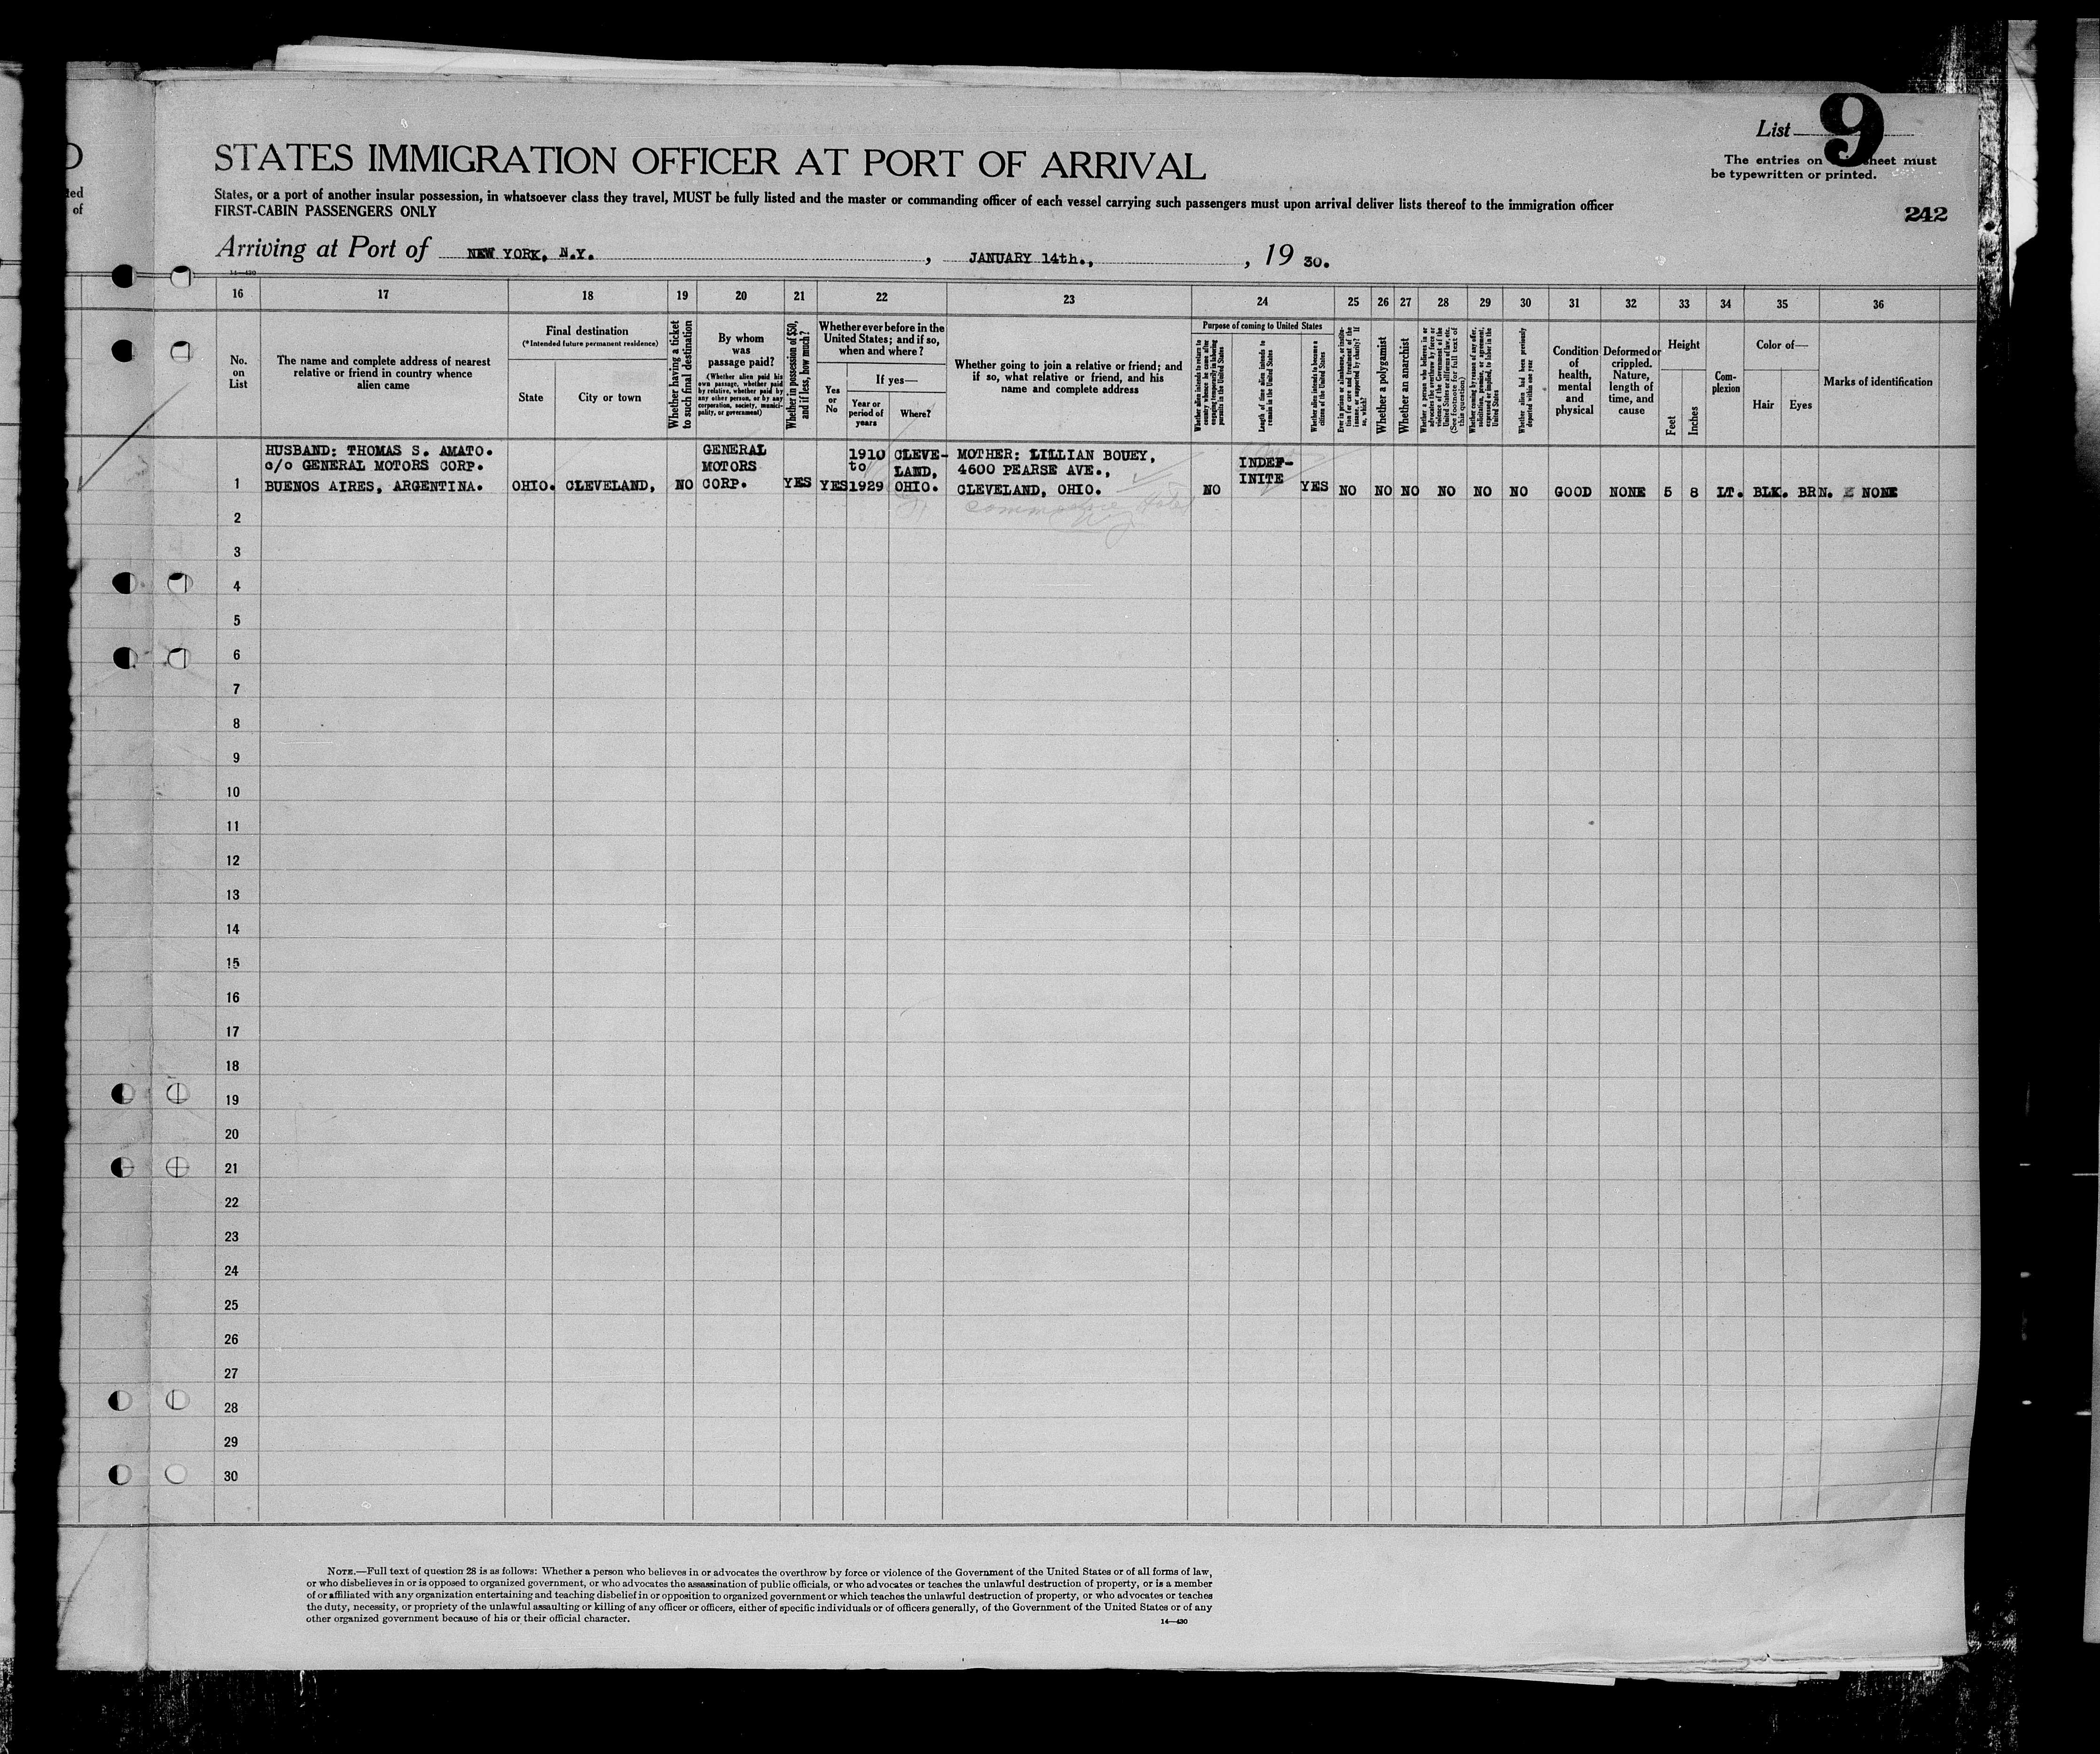 D
ted
of
List 9
The entries on sheet must
be typewritten or printed.
STATES IMMIGRATION OFFICER AT PORT OF ARRIVAL
States, or a port of another insular possession, in whatsoever class they travel, MUST be fully listed and the master or commanding officer of each vessel carrying such passengers must upon arrival deliver lists thereof to the immigration officer
FIRST-CABIN PASSENGERS ONLY
242
Arriving at Port of NEW YORK, N.Y. , JANUARY 14th., , 19 30.
14—430
16 17 18 19 20 21 22 23 24 25 26 27 28 29 30 31 32 33 34 35 36
No.
on
List
The name and complete address of nearest
relative or friend in country whence
alien came
Final destination
(*Intended future permanent residence)
State
City or town
Whether having a ticket
to such final destination
By whom
was
passage paid?
(Whether alien paid his
own passage, whether paid
by relative, whether paid by
any other person, or by any
corporation, society, munici-
pality, or government)
Whether in possession of $50,
and if less, how much?
Whether ever before in the
United States; and if so,
when and where?
Yes
or
No
If yes—
Year or
period of
years
Where?
Whether going to join a relative or friend; and
if so, what relative or friend, and his
name and complete address
Purpose of coming to United States
Whether alien intends to return to
country whence he came after
engaging temporarily in laboring
pursuits in the United States
Length of time alien intends to
remain in the United States
Whether alien intends to become a
citizen of the United States
Ever in prison or almshouse, or institu-
tion for care and treatment of the
insane, or supported by charity? If
so, which?
Whether a polygamist
Whether an anarchist
Whether a person who believes in or
advocates the overthrow by force or
violence of the Government of the
United States or all forms of law, etc.
(See footnote for full text of
this question)
Whether coming by reason of any offer,
solicitation, promise, or agreement,
expressed or implied, to labor in the
United States
Whether alien had been previously
deported within one year
Condition
of
health,
mental
and
physical
Deformed or
crippled.
Nature,
length of
time, and
cause
Height
Feet
Inches
Com-
plexion
Color of—
Hair
Eyes
Marks of identification
HUSBAND: THOMAS S. AMATO. GENERAL 1910 CLEVE- MOTHER: LILLIAN BOUEY,
c/o GENERAL MOTORS CORP. MOTORS to LAND, 4600 PEARSE AVE., INDEF-
1 BUENOS AIRES, ARGENTINA. OHIO. CLEVELAND, NO CORP. YES YES 1929 OHIO. CLEVELAND, OHIO. NO INITE YES NO NO NO NO NO NO GOOD NONE 5 8 LT. BLK. BRN. NONE
2
3
4
5
6
7
8
9
10
11
12
13
14
15
16
17
18
19
20
21
22
23
24
25
26
27
28
29
30
NOTE.—Full text of question 28 is as follows: Whether a person who believes in or advocates the overthrow by force or violence of the Government of the United States or of all forms of law,
or who disbelieves in or is opposed to organized government, or who advocates the assassination of public officials, or who advocates or teaches the unlawful destruction of property, or is a member
of or affiliated with any organization entertaining and teaching disbelief in or opposition to organized government or which teaches the unlawful destruction of property, or who advocates or teaches
the duty, necessity, or propriety of the unlawful assaulting or killing of any officer or officers, either of specific individuals or of officers generally, of the Government of the United States or of any
other organized government because of his or their official character.
14—430